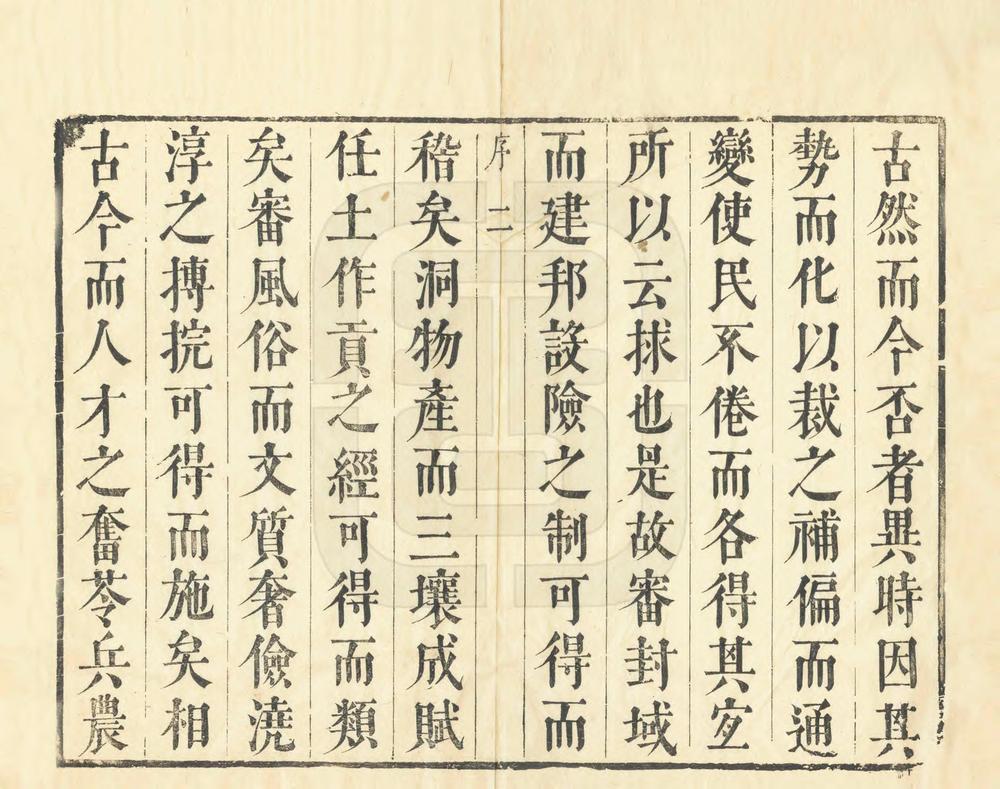 古然而今否者異時因其
勢而化以裁之補偏而通
變使民不倦而各得其宐
所以云捄也是故審封域
而建邦設險之制可得而
序 二
稽矣洞物產而三壤成賦
任土作貢之經可得而類
矣審風俗而文質奢儉澆
淳之摶捖可得而施矣相
古今而人才之奮苓兵農